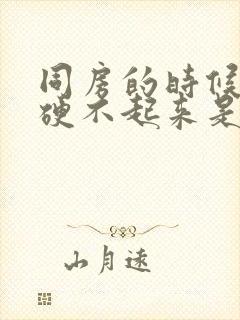 同房的时候
硬不起来是
山月远